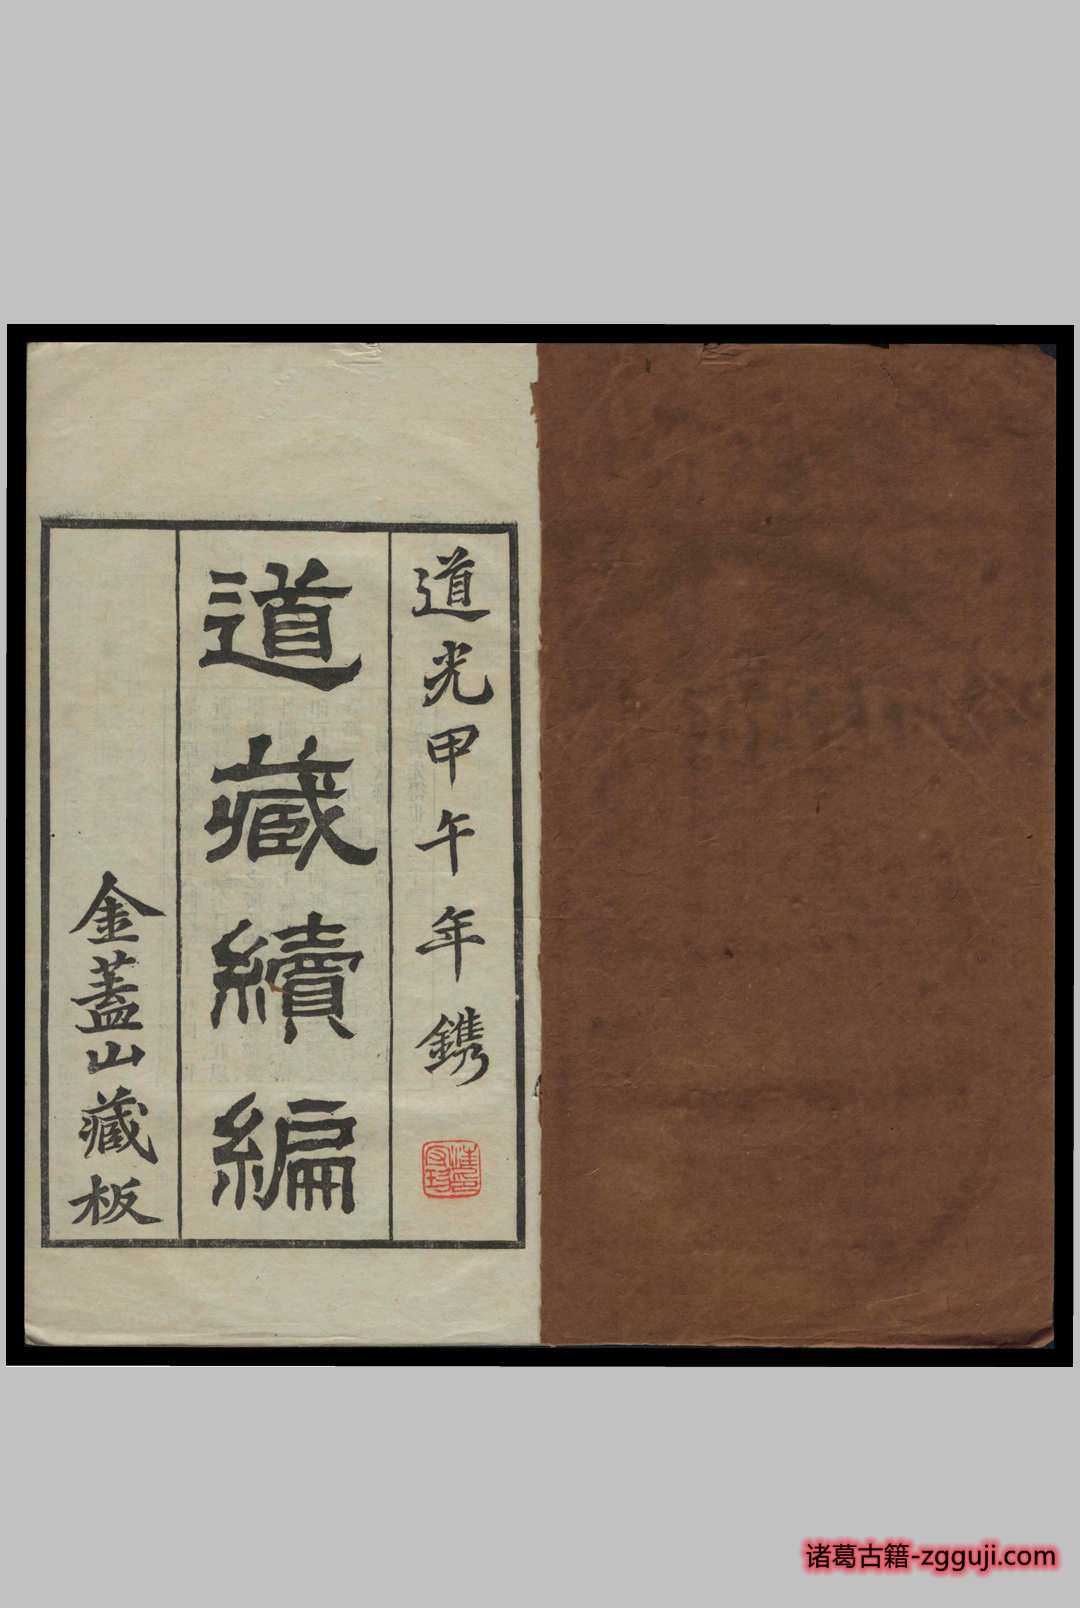 道光甲午年鐫
道藏續編
金蓋山藏板
诸葛古籍-zgguji.com